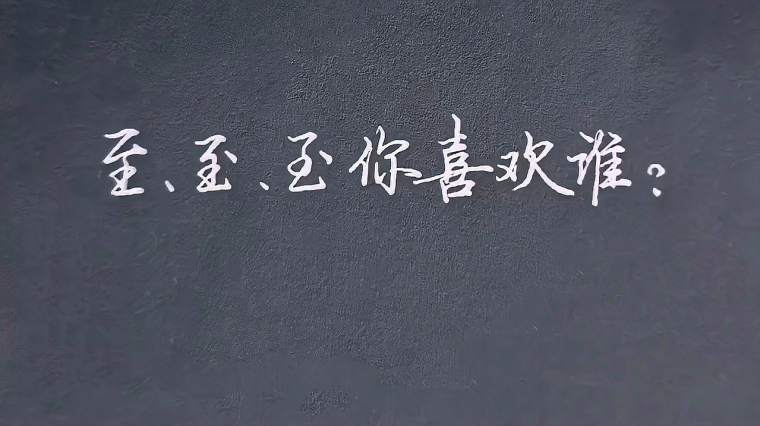 至、至、至你喜欢谁？